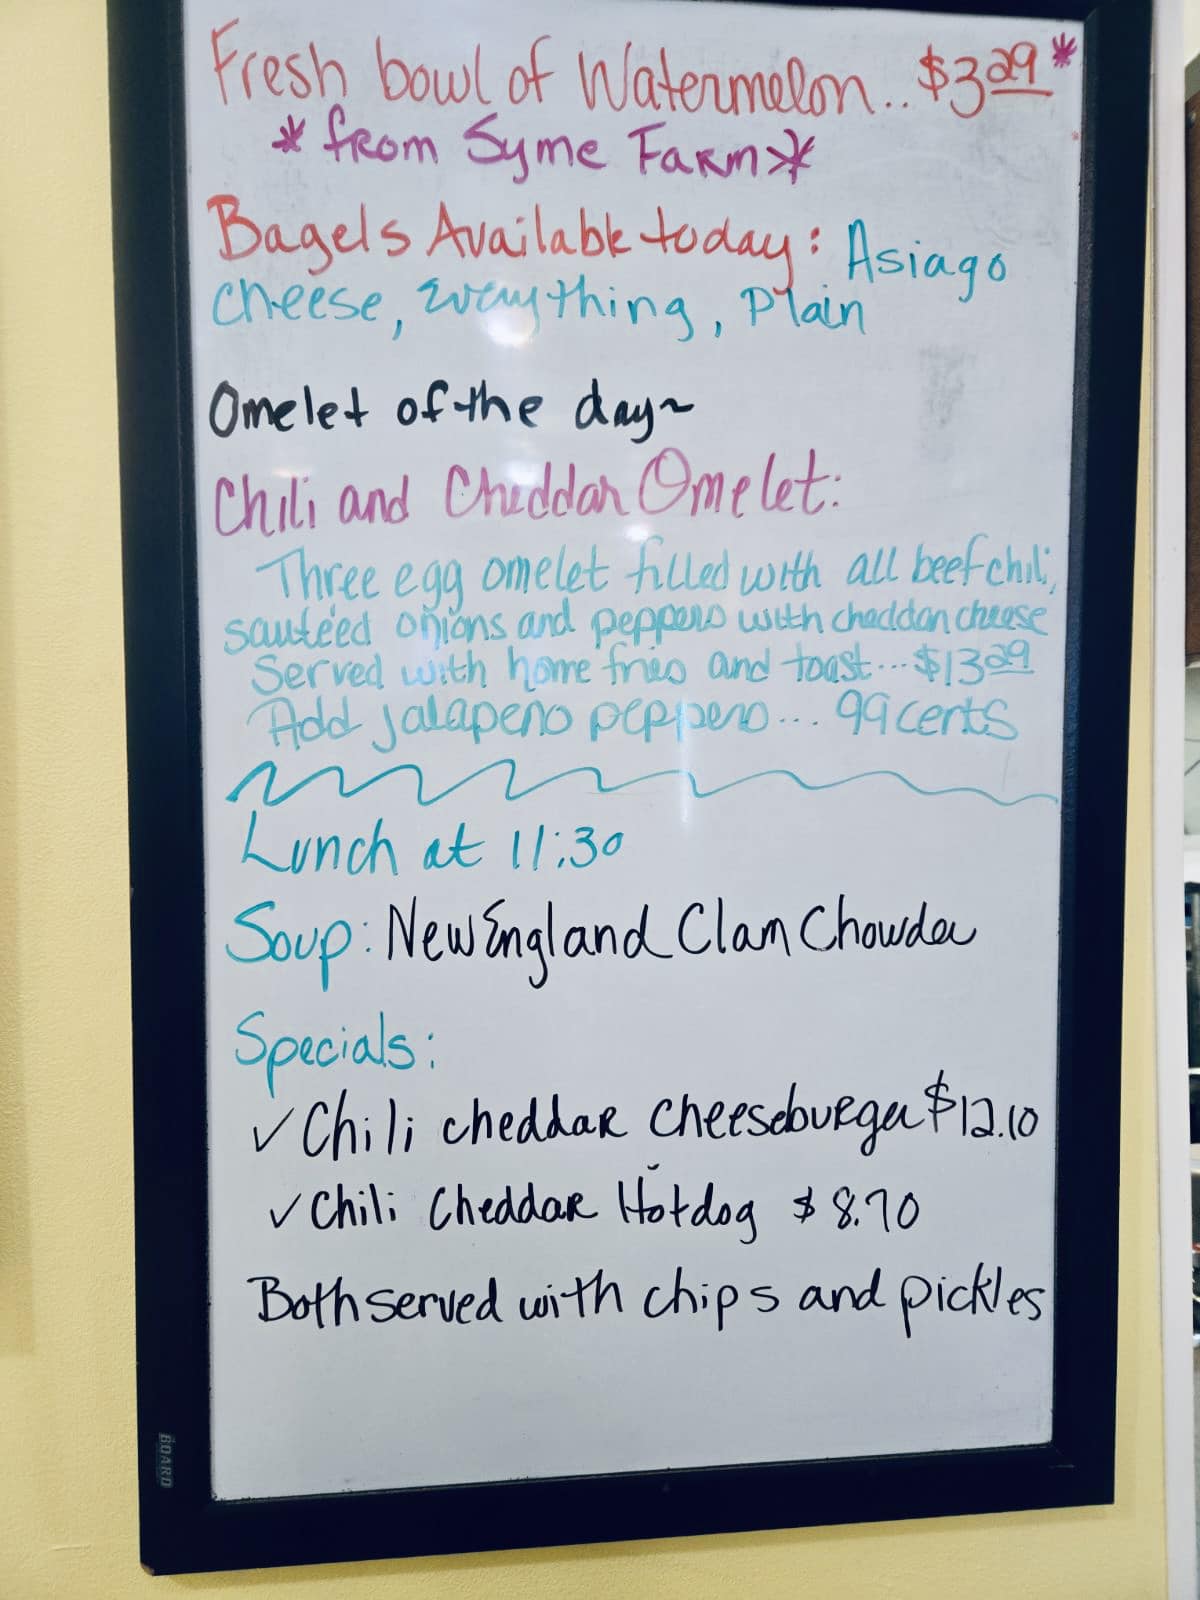 Fresh bowl of Watermelon.. $3.29*
*from Syme Farm*
Bagels Available today: Asiago
cheese, Everything, Plain
Omelet of the day~
Chili and Cheddar Omelet:
Three egg omelet filled with all beef chili,
sautéed onions and peppers with cheddar cheese
Served with home fries and toast...$13.29
Add jalapeno peppers... 99 cents
Lunch at 11:30
Soup: New England Clam Chowder
Specials:
✓Chili cheddar cheeseburger $12.10
✓Chili Cheddar Hotdog $8.70
Both served with chips and pickles
BOARD